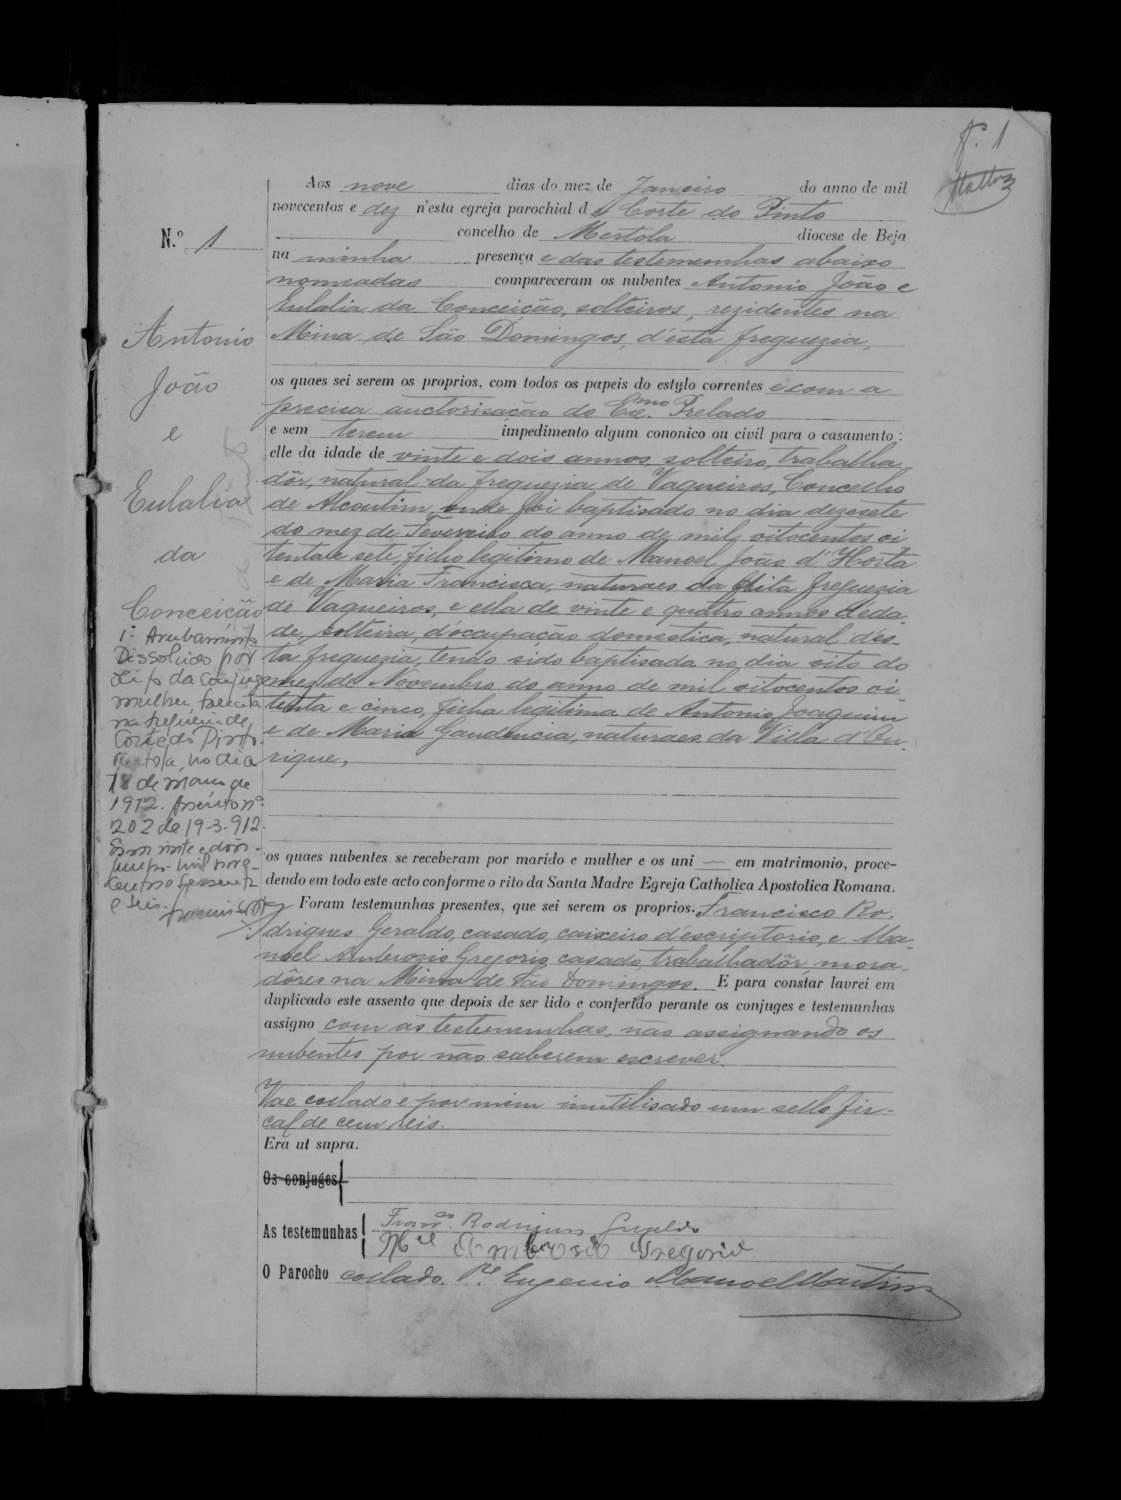 Fl. 1
Mattos
N.º 1
Antonio
João
e
Eulalia
da
Conceição
Aos nove dias do mez de Janeiro do anno de mil
novecentos e dez n'esta egreja parochial de Corte do Pinto
concelho de Mertola diocese de Beja
na minha presença e das testemunhas abaixo
nomeadas compareceram os nubentes Antonio João e
Eulalia da Conceição, solteiros, rezidentes na
Mina de São Domingos, d'esta freguezia,
os quaes sei serem os proprios, com todos os papeis do estylo correntes e com a
precisa auctorisação do Exmo. Prelado
e sem terem impedimento algum cononico ou civil para o casamento:
elle da idade de vinte e dois annos, solteiro, trabalha-
dôr, natural da freguezia de Vaqueiros, Concelho
de Alcoutim, onde foi baptisado no dia dezesete
do mez de Fevereiro do anno de mil oitocentos oi
tenta e sete, filho legitimo de Manoel João d'Horta
e de Maria Francisca, naturaes da dita freguezia
de Vaqueiros, e ella de vinte e quatro annos d'eda-
de, solteira, d'occupação domestica, natural d'es-
ta freguezia, tendo sido baptisada no dia oito do
mez de Novembro do anno de mil oitocentos oi
tenta e cinco, filha legitima de Antonio Joaquim
e de Maria Gaudencia, naturaes da Villa d'Ou-
rique,
1.º Averbamento
Dissolvido por
da conjuge
mulher,
na freguezia de
Corte do Pinto
Mertola, no dia
18 de março de
1912. Assento nº
202 de 19-3-912.
Em vinte e dois
mil nove-
centos sessenta
e seis.
os quaes nubentes se receberam por marido e mulher e os uni em matrimonio, proce-
dendo em todo este acto conforme o rito da Santa Madre Egreja Catholica Apostolica Romana.
Foram testemunhas presentes, que sei serem os proprios. Francisco Ro-
drigues Geraldo, casado, caixeiro d'escriptorio, e Ma-
noel Ambrozio Gregorio, casado, trabalhadôr, mora-
dôres na Mina de São Domingos. E para constar lavrei em
duplicado este assento que depois de ser lido e conferido perante os conjuges e testemunhas
assigno com as testemunhas, não assignando os
nubentes por não saberem escrever.
Vae collado e por mim inutilisado um sello fis-
cal de cem reis.
Era ut supra.
Os conjuges
As testemunhas Franco. Rodrigues Geraldo
Mel Ambrosio Gregorio
O Parocho collado. Pe. Eugenio Manoel Martins